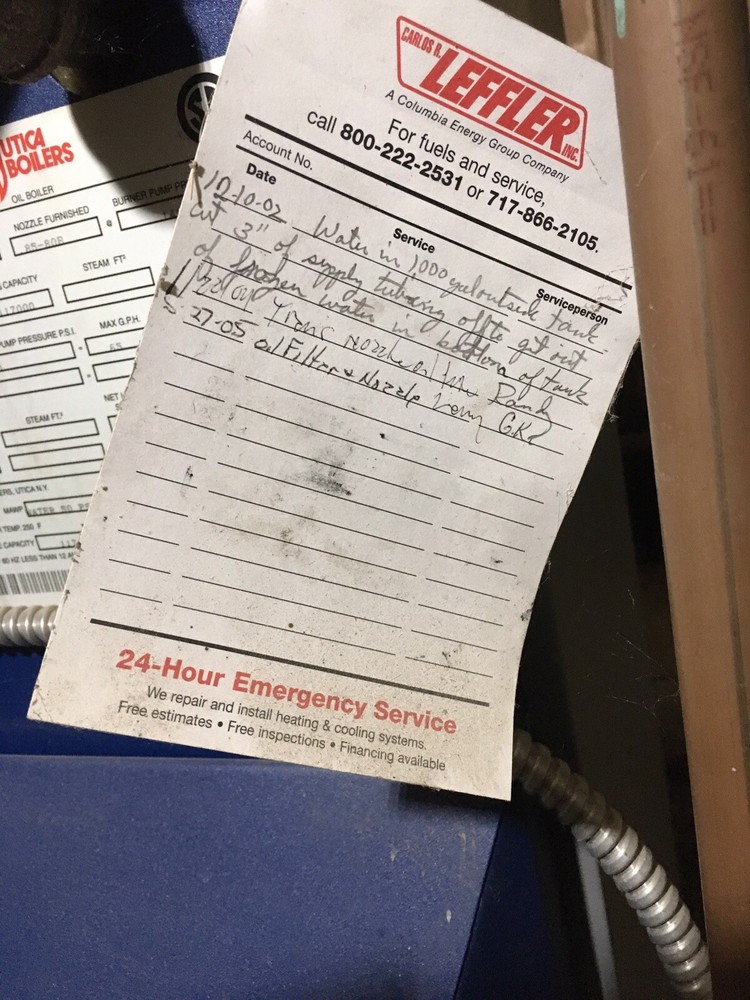 CARLOS R.
LEFFLER INC.
A Columbia Energy Group Company
For fuels and service,
call 800-222-2531 or 717-866-2105.
Account No.
Date Service Serviceperson
12-10-02 Water in 1000 gal outside tank.
cut 3" of supply tubing off to get out
of frozen water in bottom of tank
Nozzle oil Randy
27-05 oil Filter & Nozzle
24-Hour Emergency Service
We repair and install heating & cooling systems.
Free estimates • Free inspections • Financing available
UTICA
BOILERS
OIL BOILER
NOZZLE FURNISHED
BURNER PUMP PR
CAPACITY
STEAM FT²
PUMP PRESSURE P.S.I.
MAX G.P.H.
STEAM FT²
NET
ERS, UTICA N.Y.
MAWP WATER
TEMP. 250 F
CAPACITY
60 HZ LESS THAN 12 A